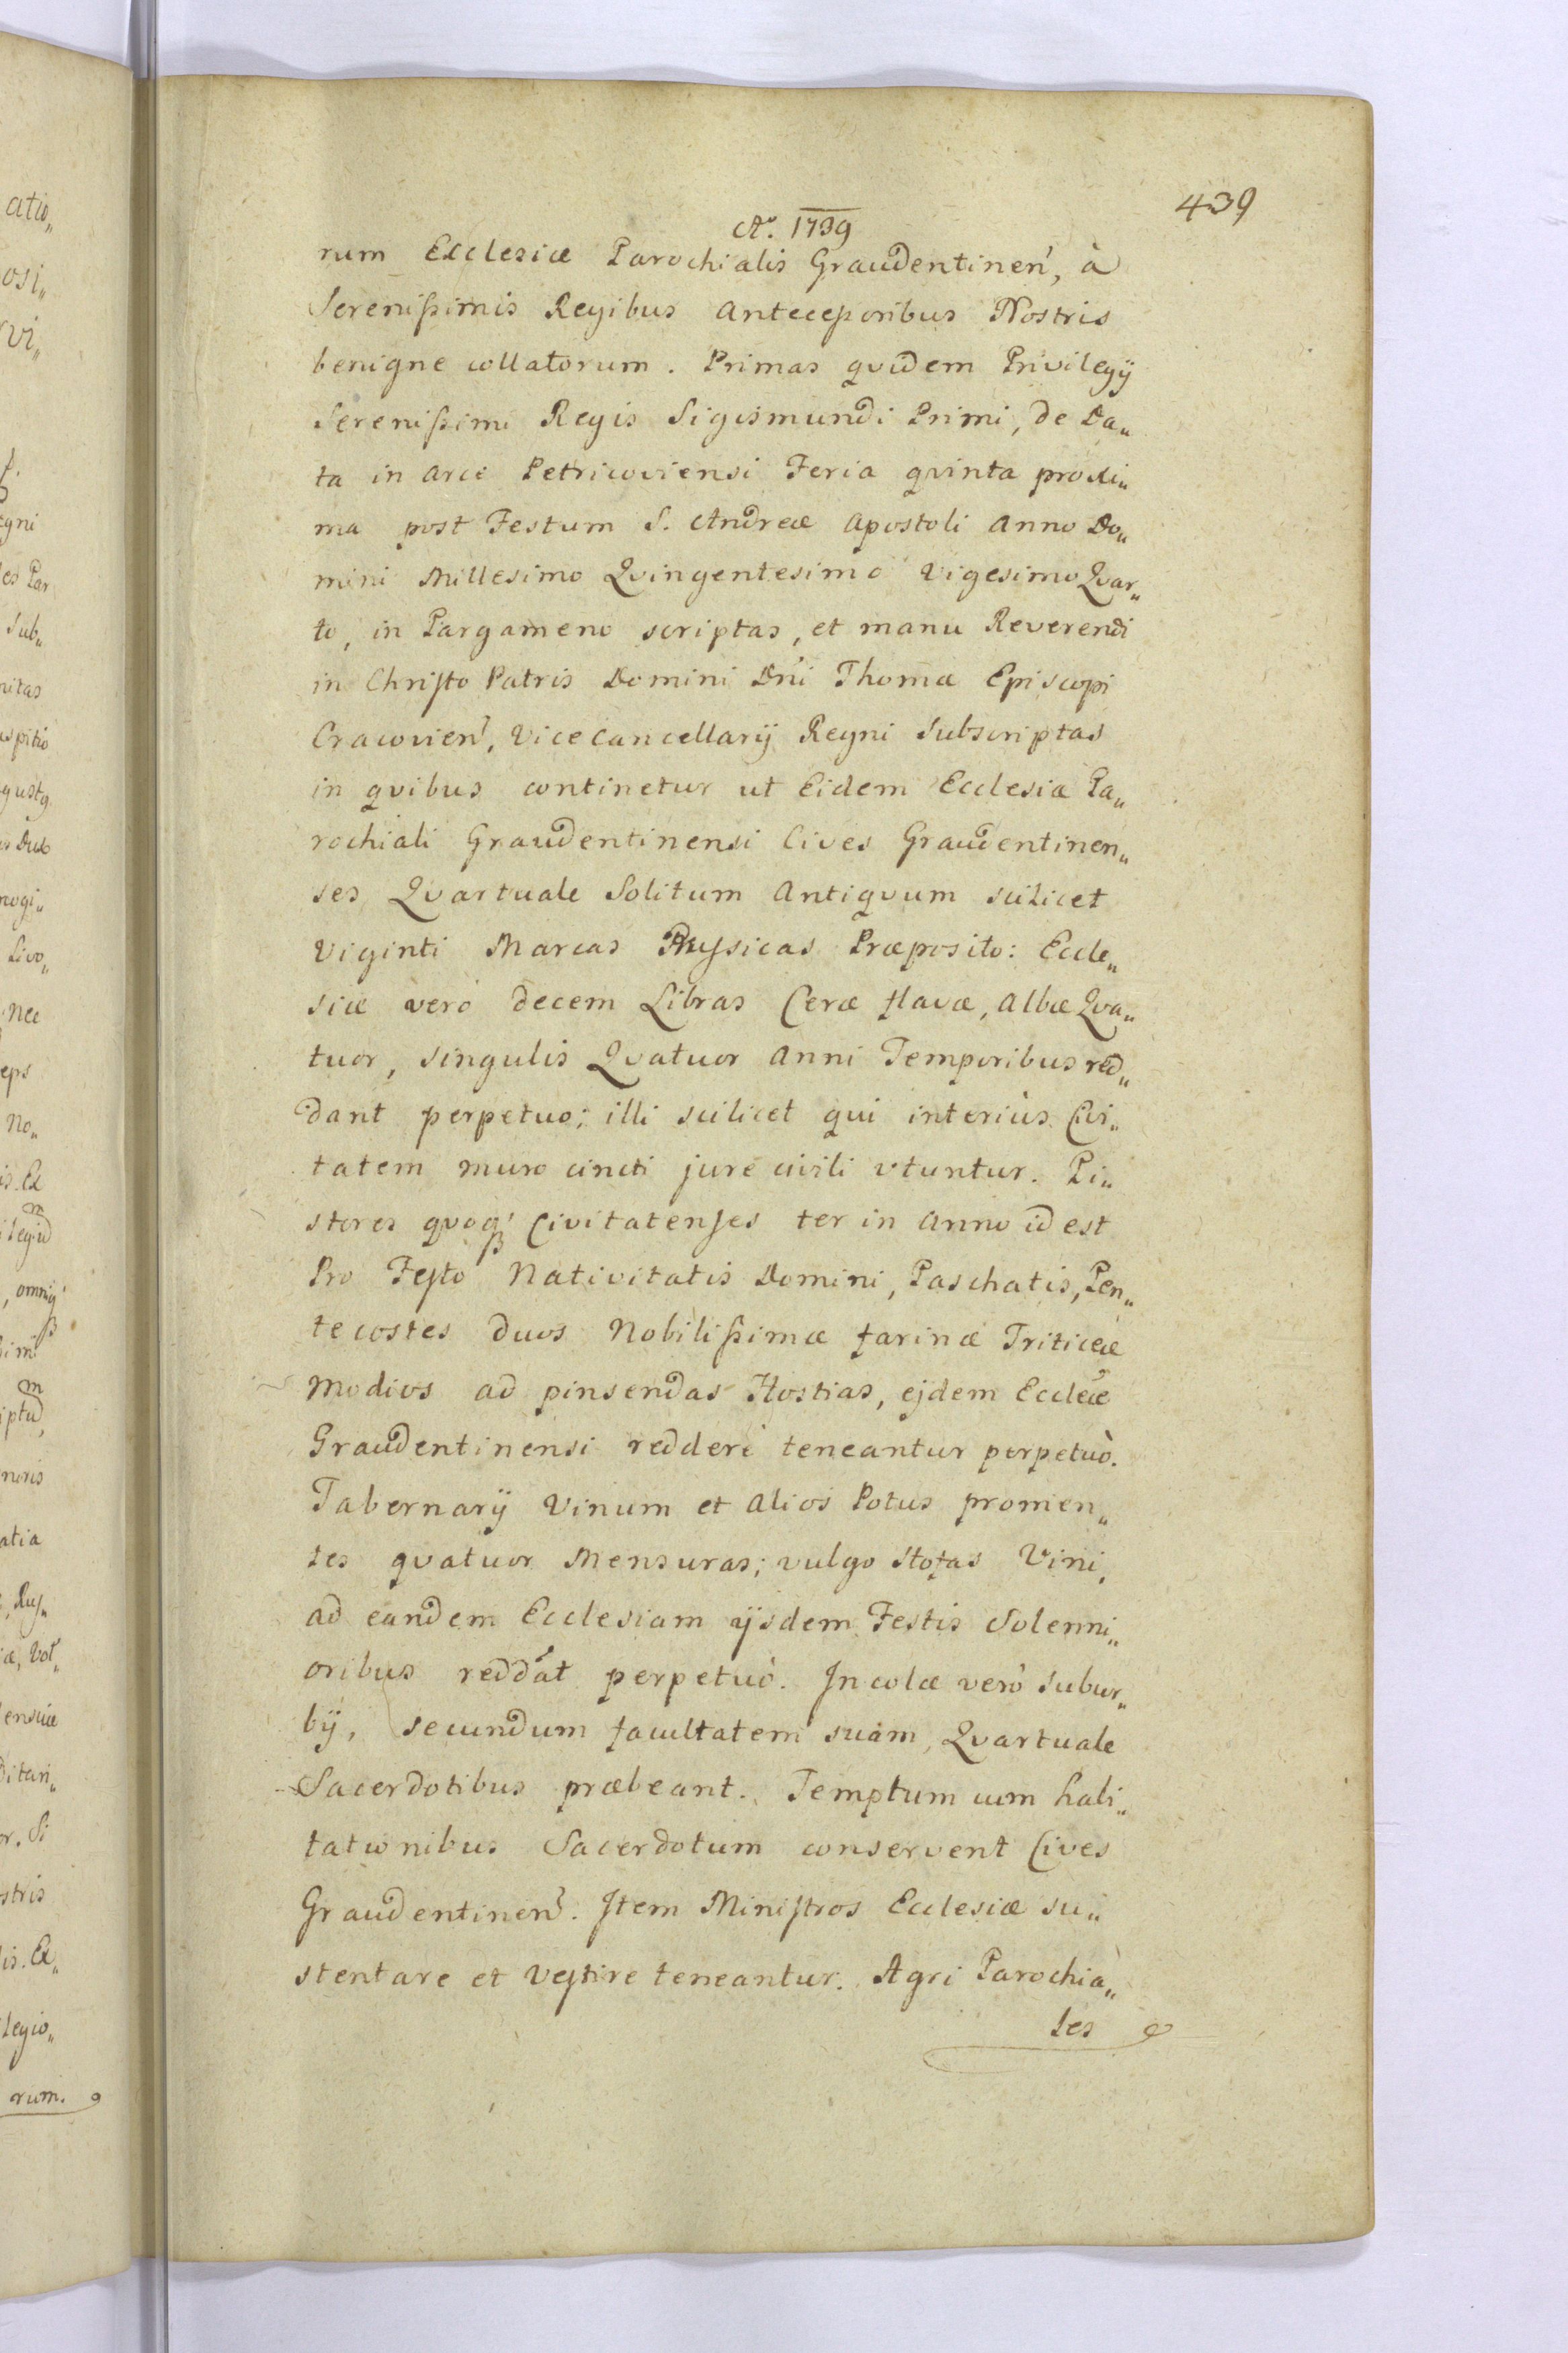 439
Aº. 1739
rum Ecclesiæ Parochialis Graudentinen, à
Serenißimis Regibus Anteceßoribus Nostris
benigne collatorum. Primas qvidem Privilegij
Serenißimi Regis Sigismundi Primi, de Da„
ta in Arce Petricoviensi Feria qvinta proxi„
ma post Festum S. Andreæ Apostoli Anno Do„
mini Millesimo Qvingentesimo Vigesimo Qvar„
to, in Pargameno scriptas, et manu Reverendi
in Christo Patris Domini Dni Thomæ Episcopi
Cracovien, Vicecancellarij Regni Subscriptas
in qvibus continetur ut Eidem Ecclesiæ Pa„
rochiali Graudentinensi Cives Graudentinen„
ses Qvartuale Solitum Antiqvum scilicet
Viginti Marcas Præposito: Eccle„
siæ verò decem Libras Ceræ flavæ, Albæ Qva„
tuor, singulis Qvatuor Anni Temporibus red„
dant perpetuo; illi scilicet qui interiùs Civi„
tatem muro cincti jure civili vtuntur. Pi„
stores qvoqꝫ Civitatenses ter in Anno id est
Pro Festo Nativitatis Domini, Paschatis, Pen„
tecostes duos Nobilißimæ farinæ Triticeæ
Modios ad pinsendas Hostias, ejdem Eccleæ
Graudentinensi reddere teneantur perpetuò.
Tabernarij Vinum et Alios Potus promen„
tes qvatuor Mensuras; vulgo Stofas Vini,
ad eandem Ecclesiam ijsdem Festis Solenni„
oribus reddāt perpetuò. Incolæ verò subur„
bij, secundum facultatem suam, Qvartuale
Sacerdotibus præbeant. Templum cum habi„
tationibus Sacerdotum conservent Cives
Graudentinen. Item Ministros Ecclesiæ su„
stentare et Vestire teneantur. Agri Parochia„
les
atio„
osi„
vi„
egni
es Par
Sub„
nitas
spitio
nogi„
Livo„
Nec
eps
No„
is. Ex
noris
atia
, Rus„
ditari„
r. Si
stris
is. Ex„
legio„
rum.